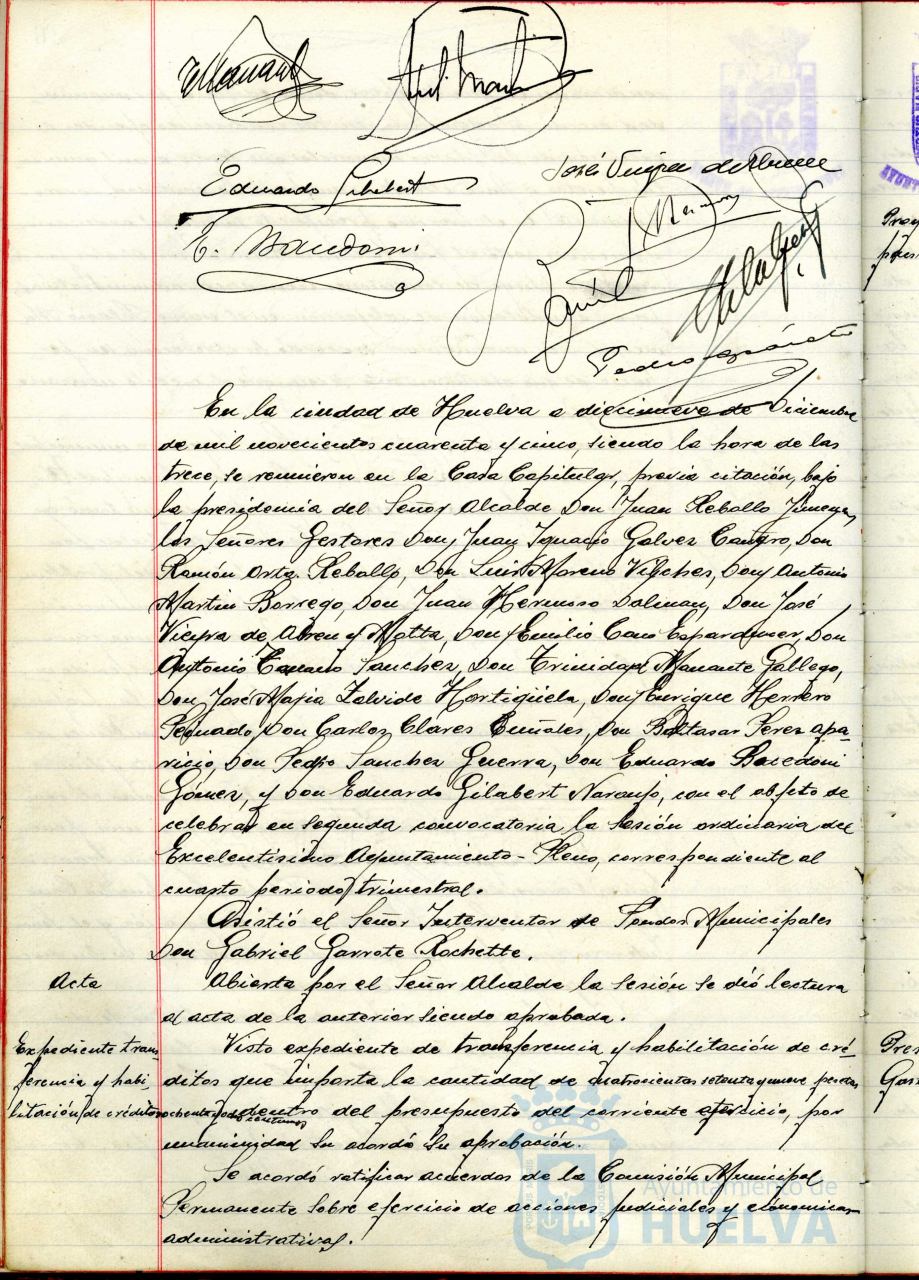 Eduardo Gilabert
José Vieyra de Abreu
En la ciudad de Huelva a diecinueve de Diciembre
de mil novecientos cuarenta y cinco, siendo la hora de las
trece, se reunieron en la Casa Capitular, previa citación, bajo
la presidencia del Señor Alcalde Don Juan Reballo Jimenez,
los Señores Gestores Don Juan Ignacio Galvez Cañero, Don
Ramón Orta Reballo, Don Luis Moreno Vilches, Don Antonio
Martin Borrego, Don Juan Hermoso Dolman, Don José
Vieyra de Abreu y Motta, Don Emilio Cano Don
Antonio Sanchez, Don Trinidad Manante Gallego,
Don José Maria Zalvide Hortigüela, Don Enrique Herrero
Don Carlos Clares Don Baltasar Perez Apa-
ricio, Don Pedro Sanchez Guerra, Don Eduardo Bacedoni
Gómez, y Don Eduardo Gilabert Naranjo, con el objeto de
celebrar en segunda convocatoria la sesión ordinaria del
Excelentisimo Ayuntamiento-Pleno, correspondiente al
cuarto periodo trimestral.
Asistió el Señor Interventor de Fondos Municipales
Don Gabriel Garrote Rochette.
Acta
Abierta por el Señor Alcalde la sesión se dió lectura
al acta de la anterior siendo aprobada.
Expediente trans
ferencia y habi
litación de créditos
Visto expediente de transferencia y habilitación de cré-
ditos que importa la cantidad de cuatrocientas setenta y nueve pesetas
ochenta y dos centimos dentro del presupuesto del corriente ejercicio, por
unanimidad se acordó su aprobación.
Se acordó ratificar acuerdos de la Comisión Municipal
Permanente sobre ejercicio de acciones judiciales y económicas
administrativas.
Ayuntamiento de
HUELVA